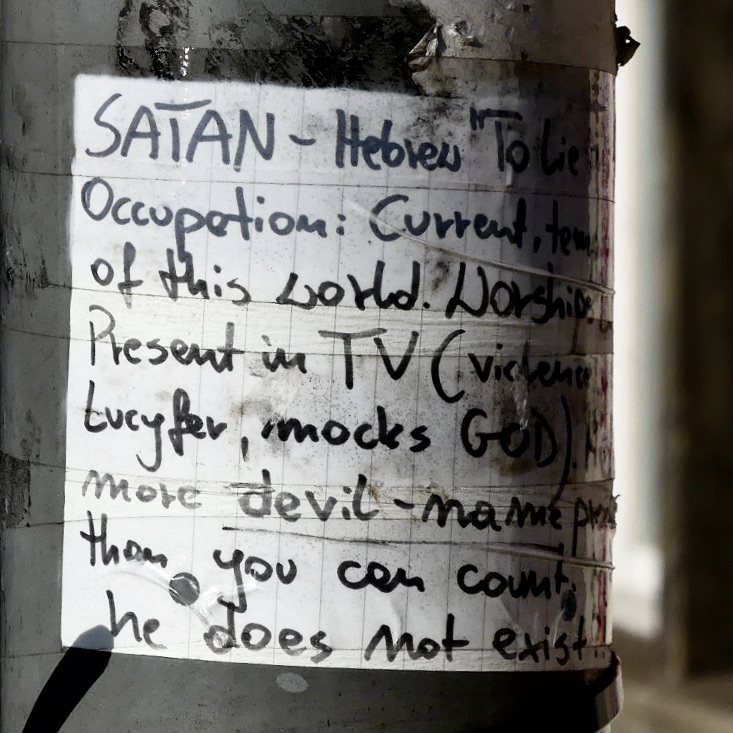 SATAN - Hebrew "To lie
Occupation: Current, tem
of this world. Worship
Present in TV (violence
Lucyfer, mocks GOD).
more devil-name
than you can count,
he does not exist.